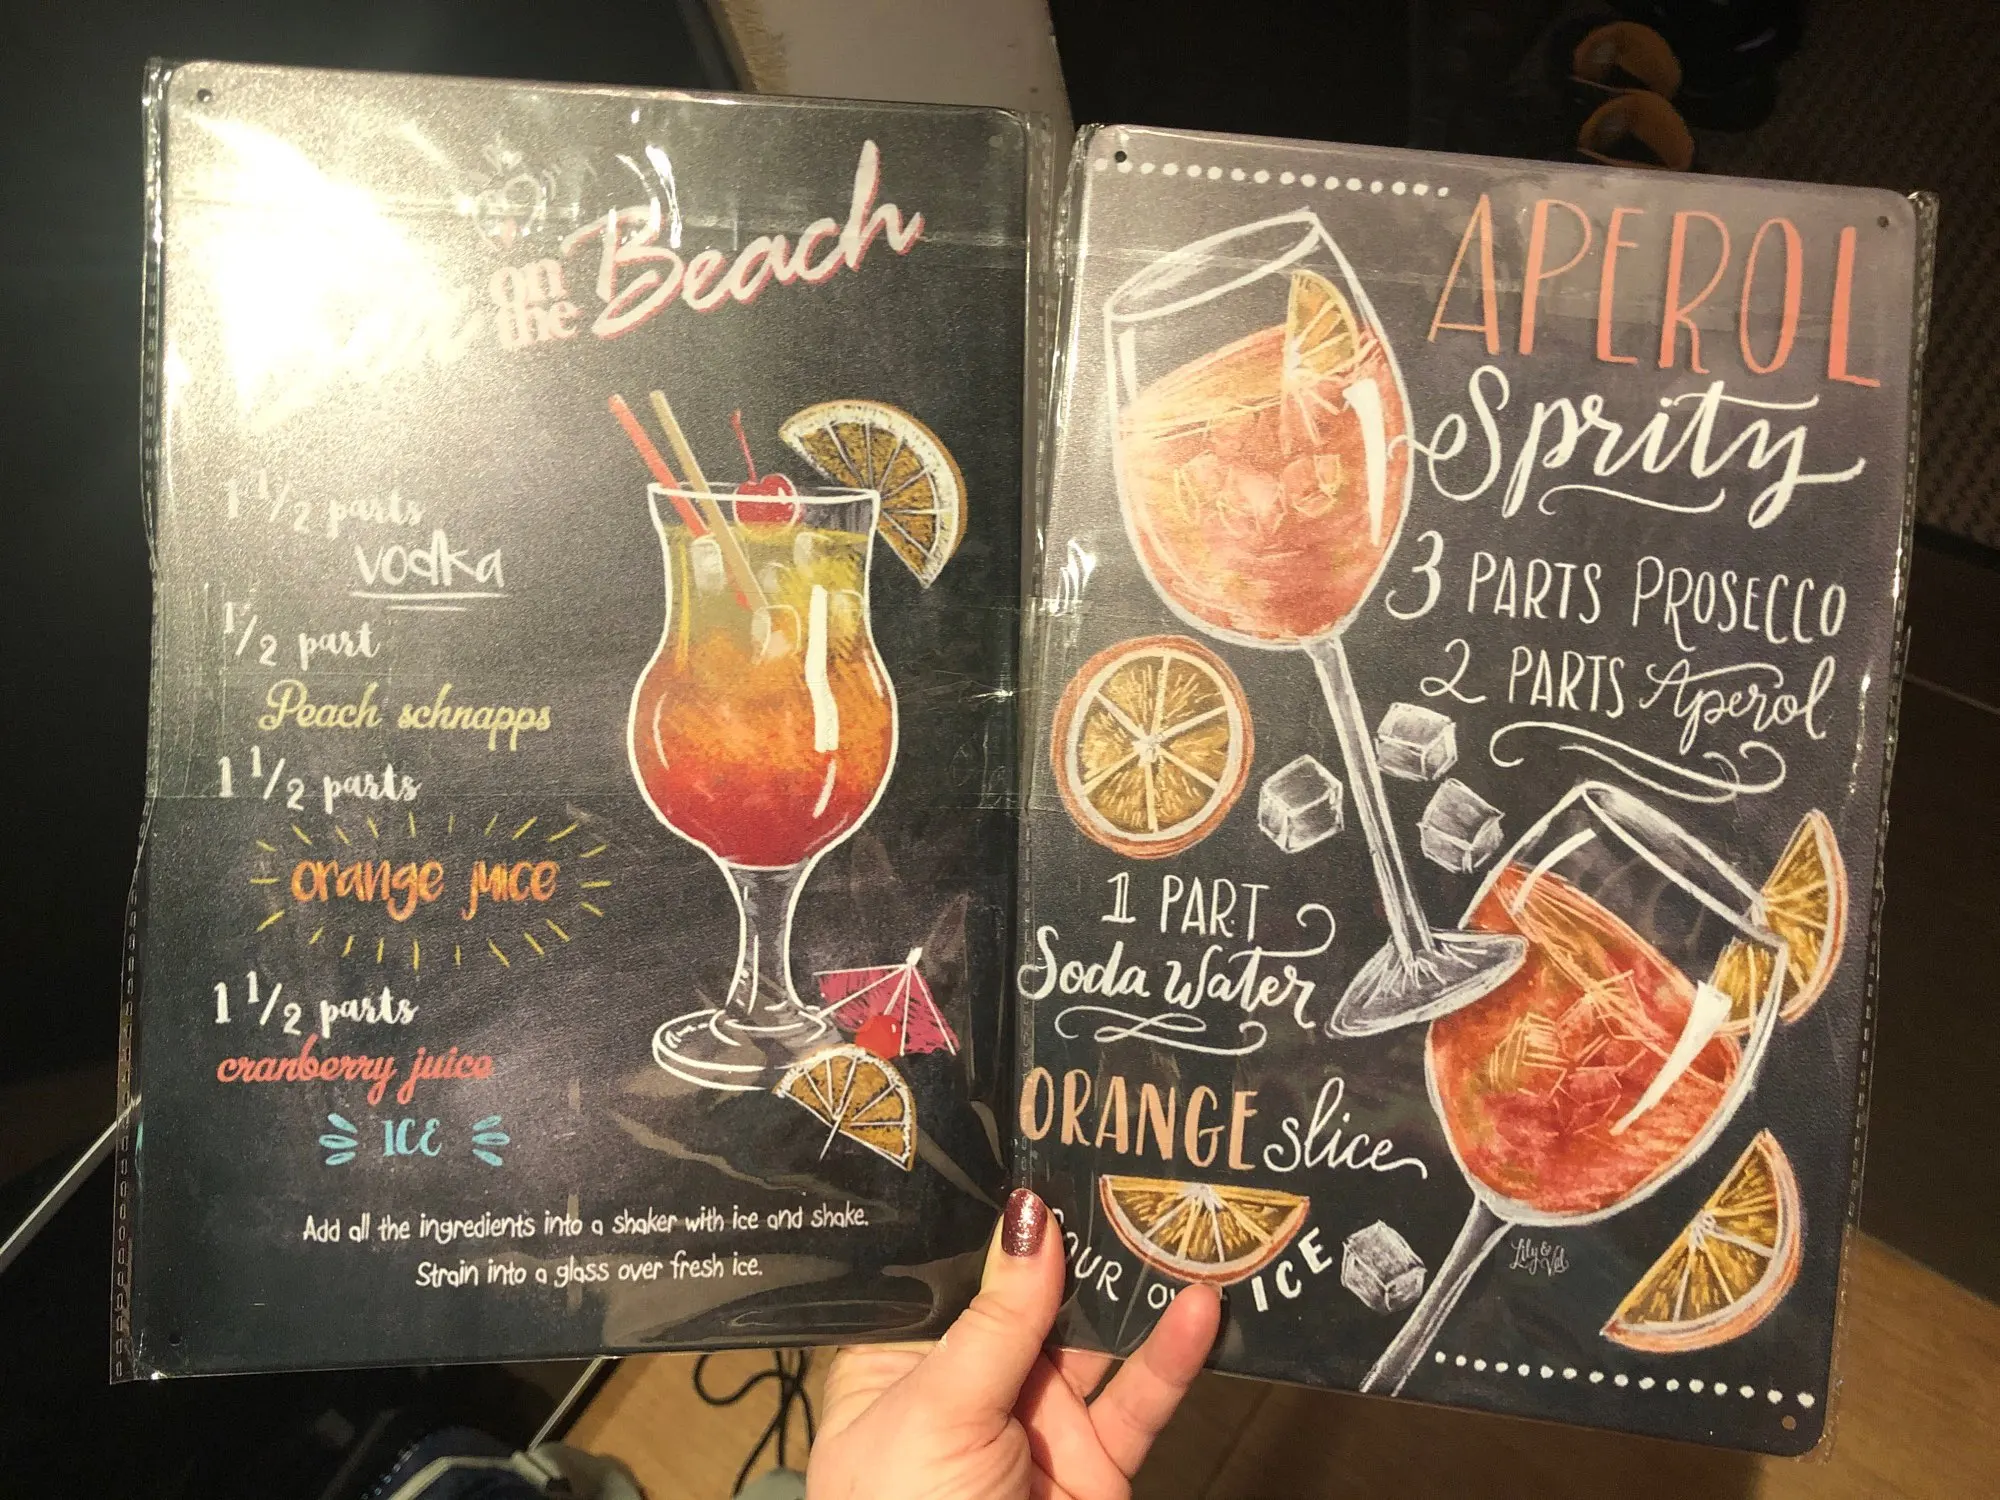 on
the Beach
1 1/2 parts
vodka
1/2 part
Peach schnapps
1 1/2 parts
orange juice
1 1/2 parts
cranberry juice
ICE
Add all the ingredients into a shaker with ice and shake.
Strain into a glass over fresh ice.
APEROL
Spritz
3 PARTS PROSECCO
2 PARTS Aperol
1 PART
Soda Water
ORANGE slice
ICE
Lily & Val